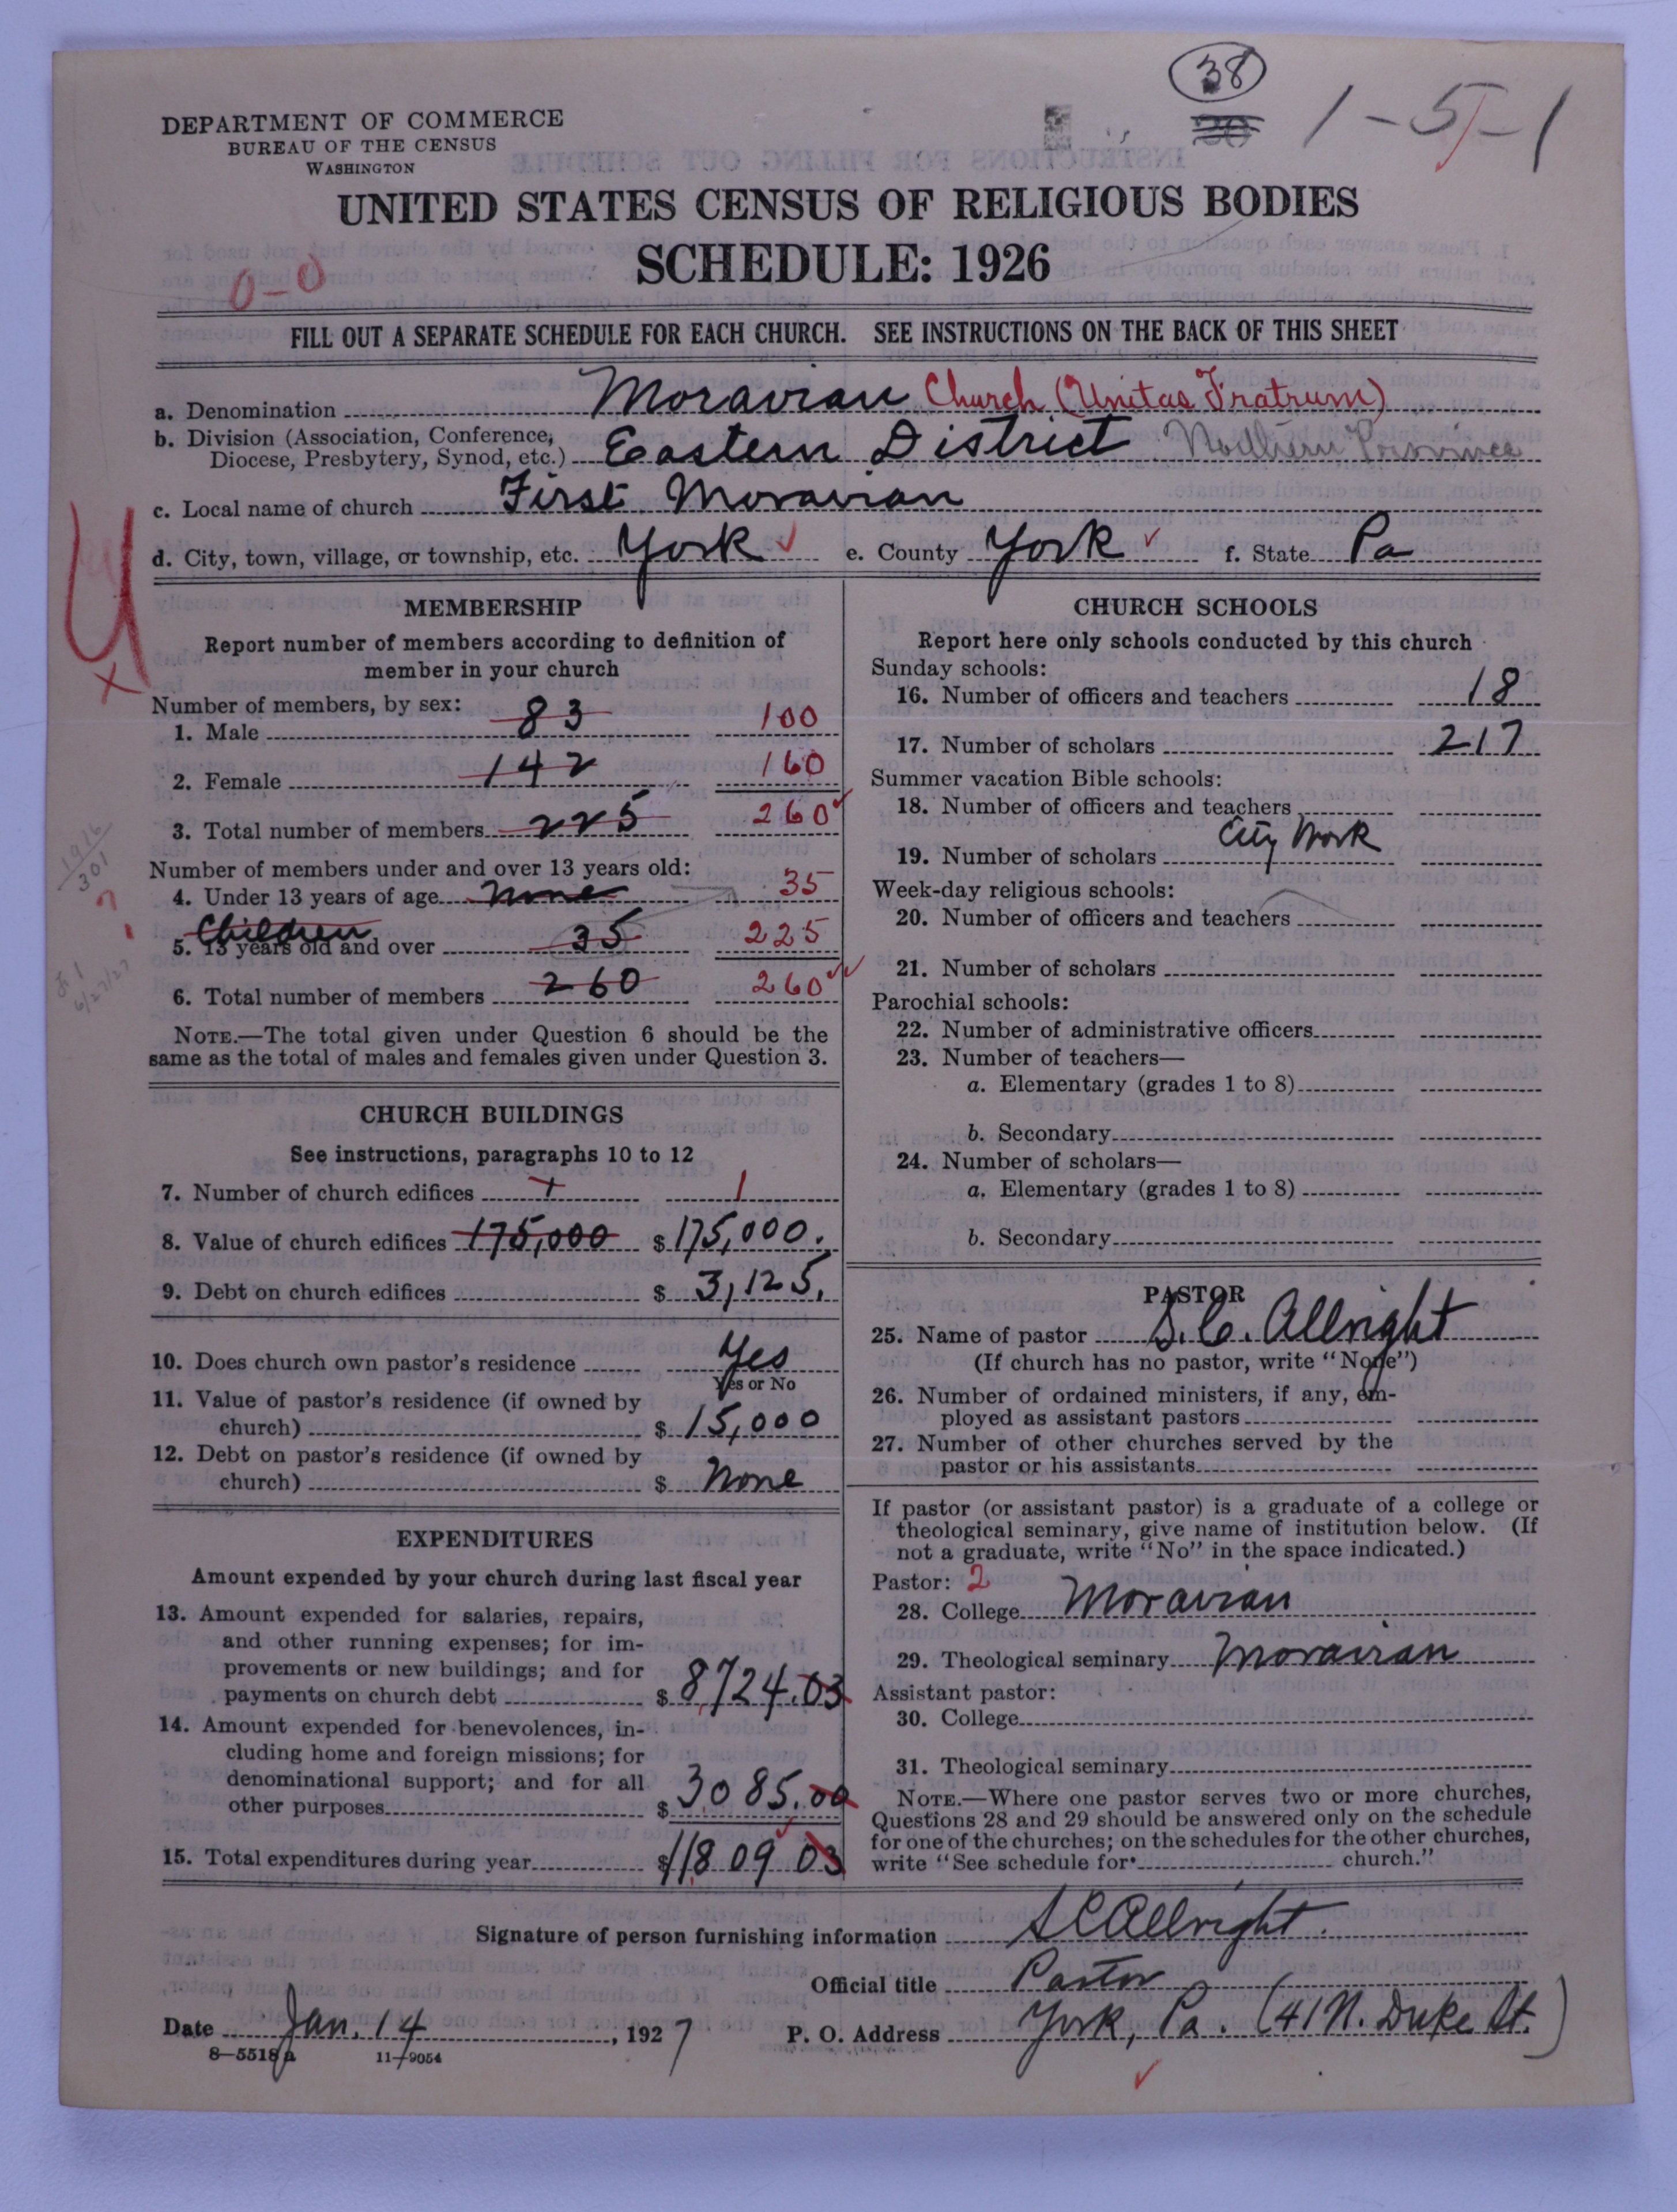 38
30
1-5-1
DEPARTMENT OF COMMERCE
BUREAU OF THE CENSUS
WASHINGTON
UNITED STATES CENSUS OF RELIGIOUS BODIES
SCHEDULE: 1926
0-0
FILL OUT A SEPARATE SCHEDULE FOR EACH CHURCH. SEE INSTRUCTIONS ON THE BACK OF THIS SHEET
a. Denomination Moravian Church (Unitas Fratrum)
b. Division (Association, Conference,
Diocese, Presbytery, Synod, etc.) Eastern District Northern Province
c. Local name of church First Moravian
d. City, town, village, or township, etc. York e. County York f. State Pa
MEMBERSHIP
Report number of members according to definition of
member in your church
Number of members, by sex:
1. Male 83 100
2. Female 142 160
3. Total number of members 225 260
1916
301
Number of members under and over 13 years old:
4. Under 13 years of age None 35
Children
5. 13 years old and over 35 225
6. Total number of members 260 260
6/27/27
NOTE.—The total given under Question 6 should be the
same as the total of males and females given under Question 3.
CHURCH BUILDINGS
See instructions, paragraphs 10 to 12
7. Number of church edifices 1 1
8. Value of church edifices 175,000 $ 175,000.
9. Debt on church edifices $ 3,125.
10. Does church own pastor's residence Yes
Yes or No
11. Value of pastor's residence (if owned by
church) $ 15,000
12. Debt on pastor's residence (if owned by
church) $ None
EXPENDITURES
Amount expended by your church during last fiscal year
13. Amount expended for salaries, repairs,
and other running expenses; for im-
provements or new buildings; and for
payments on church debt $ 8724.03
14. Amount expended for benevolences, in-
cluding home and foreign missions; for
denominational support; and for all
other purposes $ 3085.00
15. Total expenditures during year $ 11809 03
CHURCH SCHOOLS
Report here only schools conducted by this church
Sunday schools:
16. Number of officers and teachers 18
17. Number of scholars 217
Summer vacation Bible schools:
18. Number of officers and teachers
City Work
19. Number of scholars
Week-day religious schools:
20. Number of officers and teachers
21. Number of scholars
Parochial schools:
22. Number of administrative officers
23. Number of teachers—
a. Elementary (grades 1 to 8)
b. Secondary
24. Number of scholars—
a. Elementary (grades 1 to 8)
b. Secondary
PASTOR
25. Name of pastor S. C. Allright
(If church has no pastor, write "None")
26. Number of ordained ministers, if any, em-
ployed as assistant pastors
27. Number of other churches served by the
pastor or his assistants
If pastor (or assistant pastor) is a graduate of a college or
theological seminary, give name of institution below. (If
not a graduate, write "No" in the space indicated.)
Pastor: 2
28. College Moravian
29. Theological seminary Moravian
Assistant pastor:
30. College
31. Theological seminary
NOTE.—Where one pastor serves two or more churches,
Questions 28 and 29 should be answered only on the schedule
for one of the churches; on the schedules for the other churches,
write "See schedule for church."
Signature of person furnishing information S C Allright
Official title Pastor
Date Jan. 14, 1927 P. O. Address York, Pa. (41 N. Duke St.)
8—5518a 11—9054